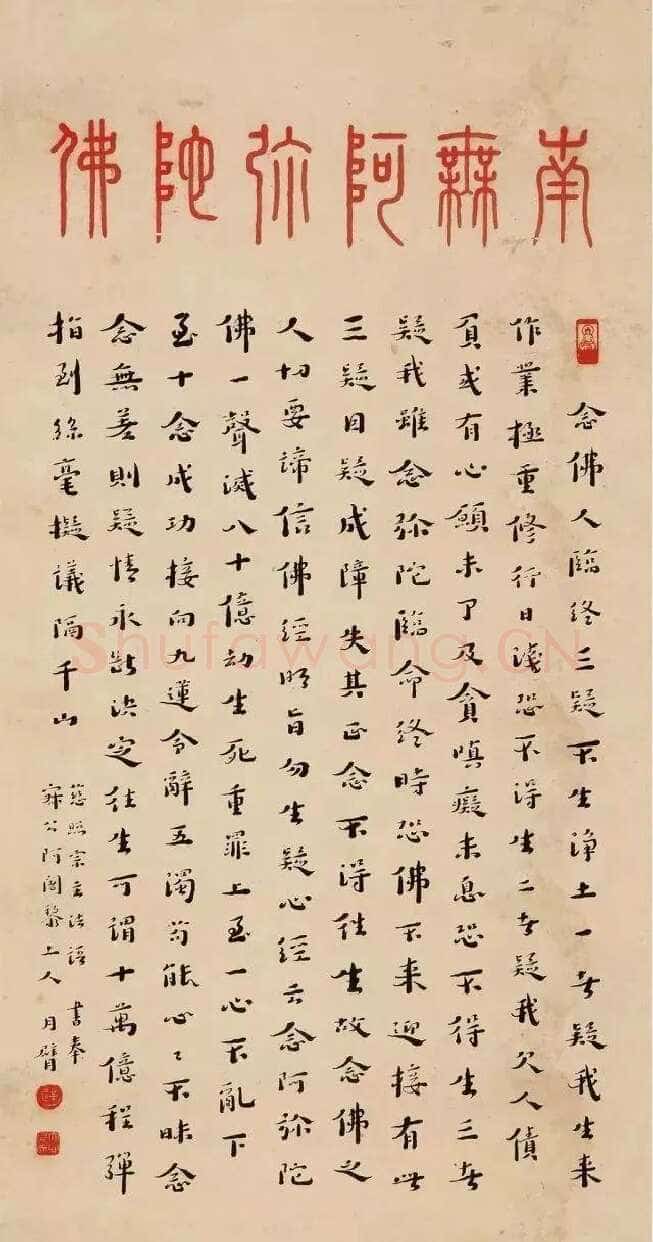 南無阿弥陀佛
念佛人臨終三疑不生净土一者疑我生来
作業極重修行日淺恐不得生二者疑我欠人債
負或有心願未了及貪嗔癡未息恐不得生三者
疑我雖念弥陀臨命終時恐佛不来迎接有此
三疑因疑成障失其正念不得往生故念佛之
人切要諦信佛經明旨勿生疑心經云念阿弥陀
佛一聲滅八十億劫生死重罪上至一心不亂下
至十念成功接向九蓮令辭五濁苟能心〻不昧念
念無差則疑情永斷決定往生可謂十萬億程彈
指到絲毫擬議隔千山
慈照宗主法語 書奉
寂公阿闍黎上人 月臂
Shufawang.CN